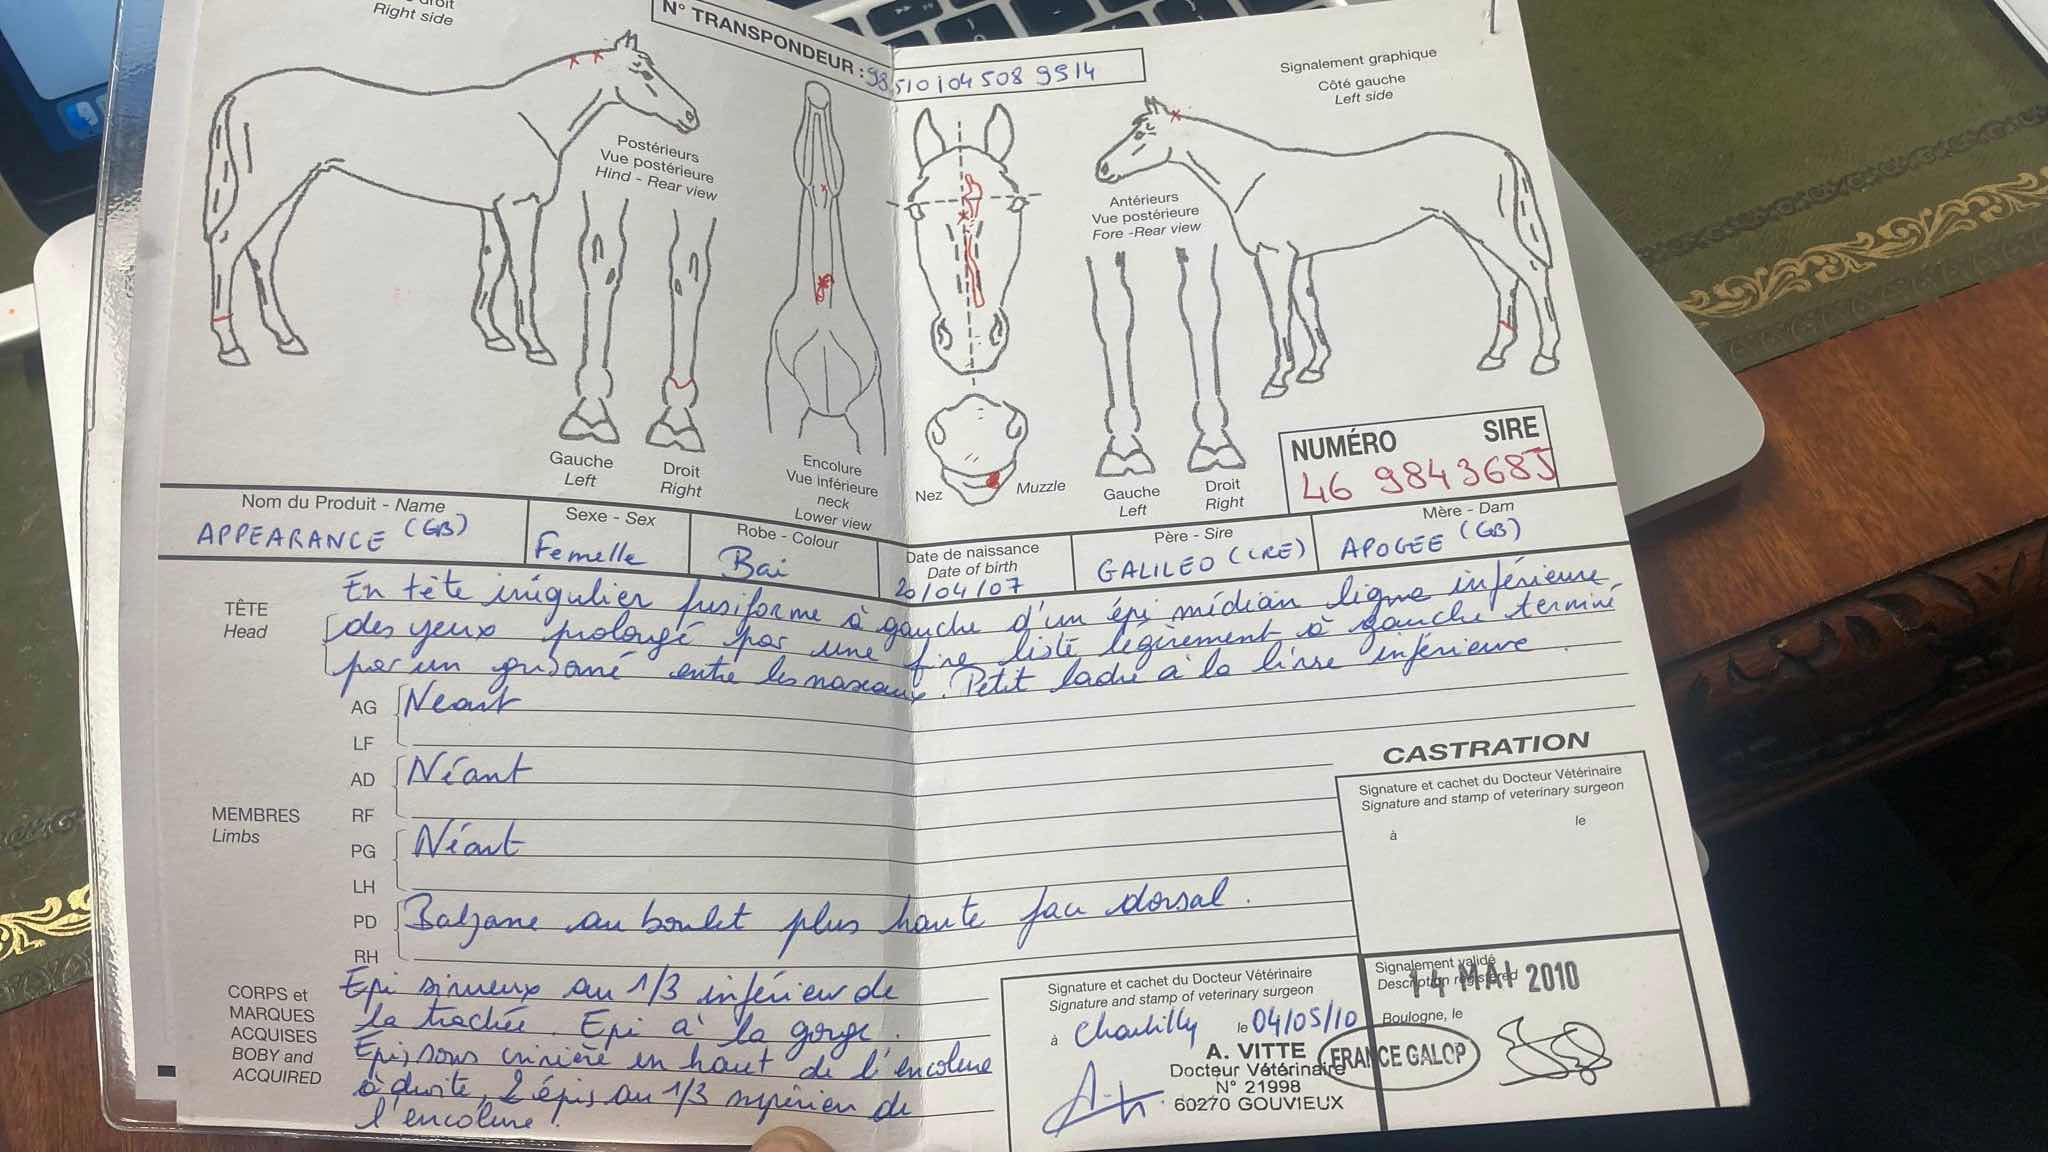 Right side
N° TRANSPONDEUR : 985101045089514
Signalement graphique
Côté gauche
Left side
Postérieurs
Vue postérieure
Hind - Rear view
Antérieurs
Vue postérieure
Fore -Rear view
Gauche
Left
Droit
Right
Encolure
Vue inférieure
neck
Lower view
Nez
Muzzle
Gauche
Left
Droit
Right
NUMÉRO SIRE
46 984368J
Nom du Produit - Name
APPEARANCE (GB)
Sexe - Sex
Femelle
Robe - Colour
Bai
Date de naissance
Date of birth
20/04/07
Père - Sire
GALILEO (IRE)
Mère - Dam
APOGEE (GB)
TÊTE
Head
En tête irrégulier fusiforme à gauche d'un épi médian ligne inférieure
des yeux prolongé par une fine liste légèrement à gauche terminé
par un entre les naseaux. Petit ladre à la lèvre inférieure.
MEMBRES
Limbs
AG
LF
Neant
AD
RF
Néant
PG
LH
Néant
PD
RH
Balzane au boulet plus haute face dorsal.
CORPS et
MARQUES
ACQUISES
BOBY and
ACQUIRED
Epi sinueux au 1/3 inférieur de
la trachée. Epi à la gorge.
Epi sous crinière en haut de l'encolure
à droite, 2 épis au 1/3 supérieur de
l'encolure.
CASTRATION
Signature et cachet du Docteur Vétérinaire
Signature and stamp of veterinary surgeon
à le
Signature et cachet du Docteur Vétérinaire
Signature and stamp of veterinary surgeon
à Chantilly le 04/05/10
A. VITTE
Docteur Vétérinaire
N° 21998
60270 GOUVIEUX
Signalement validé
Description registered
14 MAI 2010
Boulogne, le
FRANCE GALOP